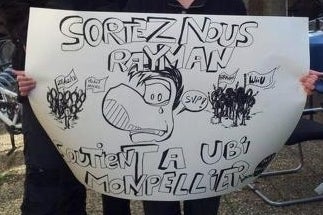 SORTEZ NOUS
RAYMAN
SVP!
WiiU
SOUTIENT A UBI
MONPELLIER